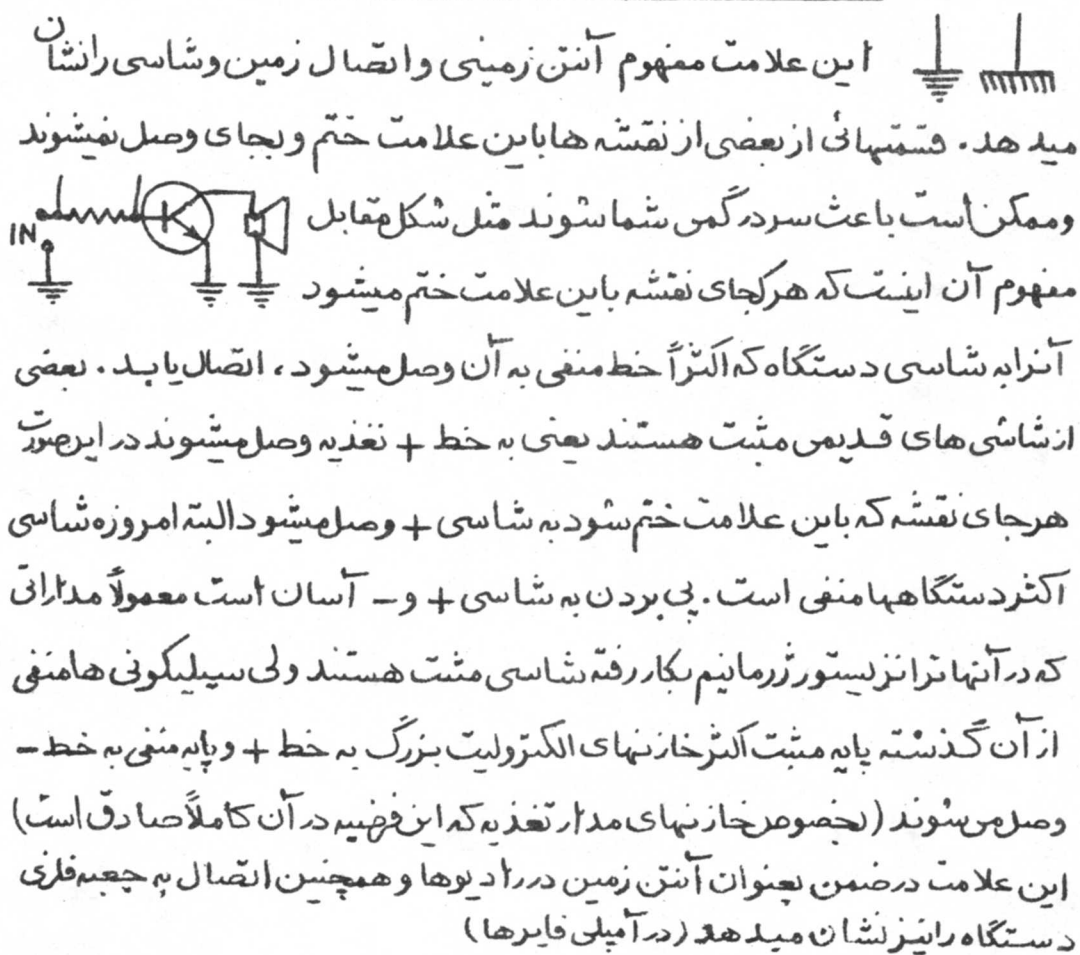 این علامت مفهوم آنتن زمینی و اتصال زمین و شاسی را نشان
میدهد. قسمتهائی از بعضی از نقشه ها باین علامت ختم و بجای وصل نمیشوند
و ممکن است باعث سردرگمی شما شوند مثل شکل مقابل
IN
مفهوم آن اینست که هر کجای نقشه باین علامت ختم میشود
آنرا به شاسی دستگاه که اکثراً خط منفی به آن وصل میشود، اتصال یابد. بعضی
از شاشی های قدیمی مثبت هستند یعنی به خط + تغذیه وصل میشوند در این صورت
هر جای نقشه که باین علامت ختم شود به شاسی + وصل میشود البته امروزه شاسی
اکثر دستگاهها منفی است. پی بردن به شاسی + و - آسان است معمولاً مداراتی
که در آنها ترانزیستور ژرمانیم بکار رفته شاسی مثبت هستند ولی سیلیکونی ها منفی
از آن گذشته پایه مثبت اکثر خازنهای الکترولیت بزرگ به خط + و پایه منفی به خط -
وصل می شوند (بخصوص خازنهای مدار تغذیه که این فرضیه در آن کاملاً صادق است)
این علامت در ضمن بعنوان آنتن زمین در رادیوها و همچنین اتصال به جعبه فلزی
دستگاه را نیز نشان میدهد (در آمپلی فایرها)